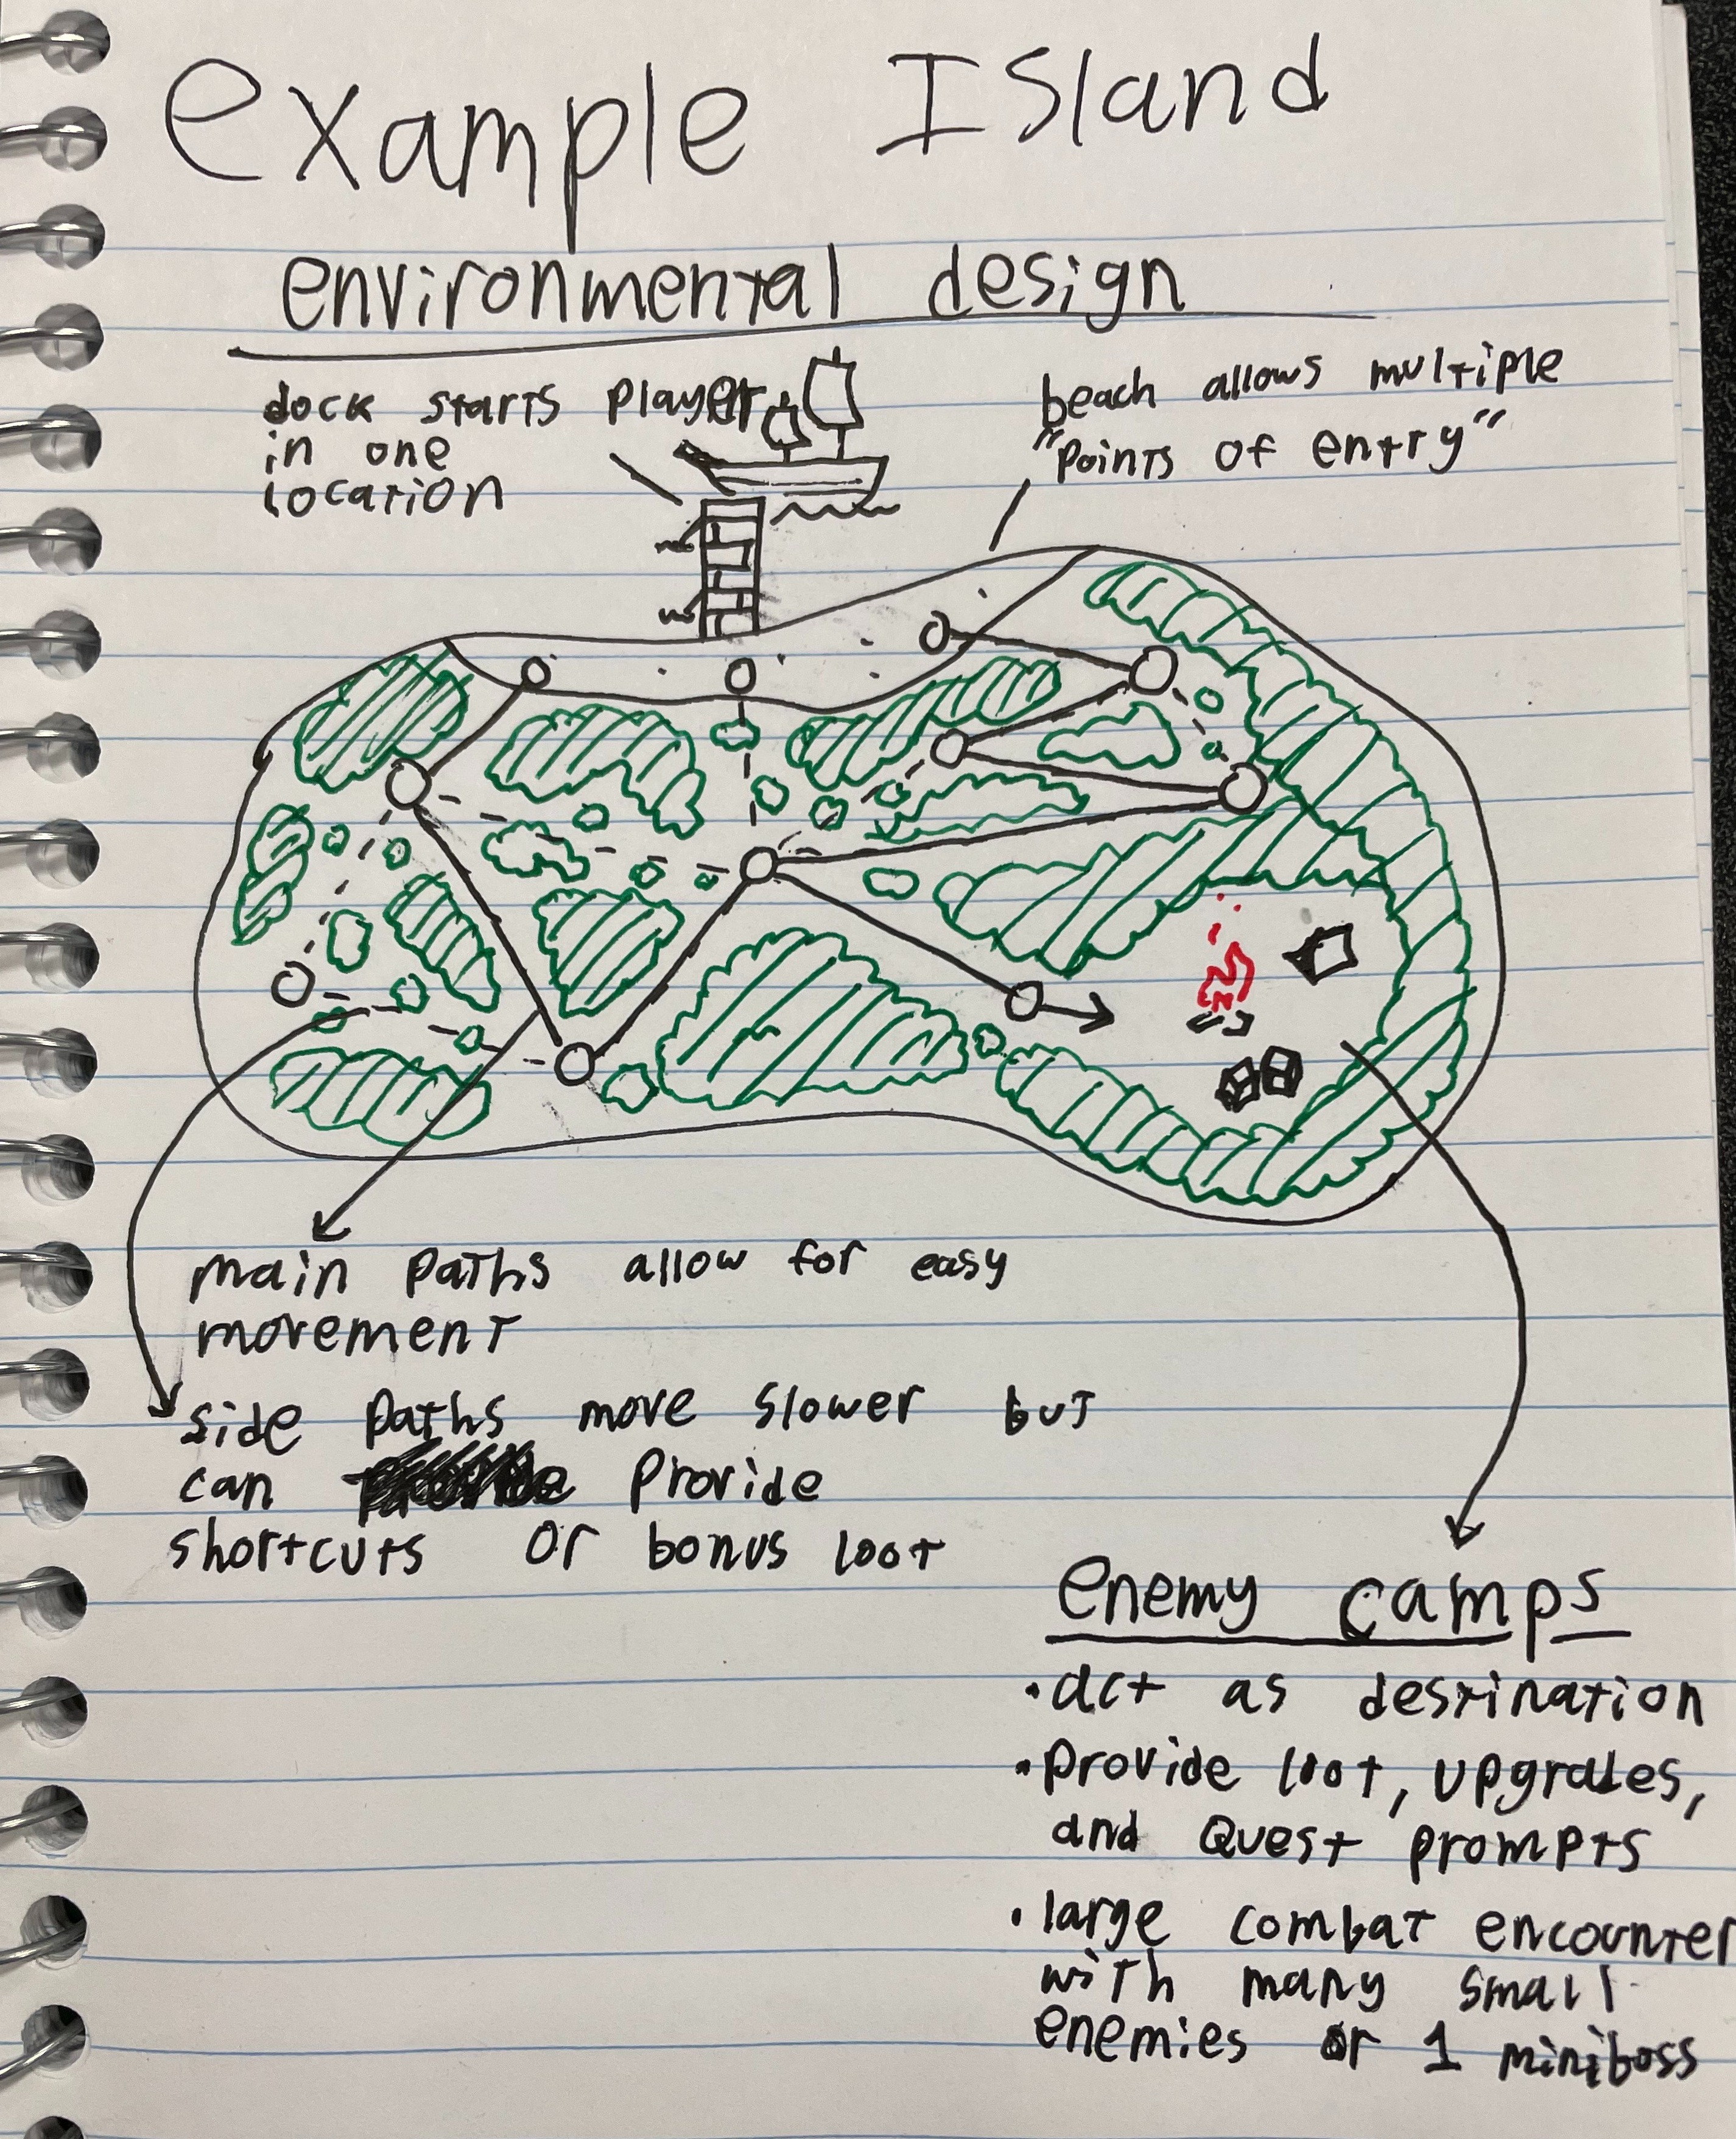 example Island
environmental design
dock starts player
in one
location
beach allows multiple
"points of entry"
main paths allow for easy
movement
side paths move slower but
can provide
shortcuts or bonus loot
enemy camps
• act as destination
• provide loot, upgrades,
and quest prompts
• large combat encounter
with many small
enemies or 1 miniboss